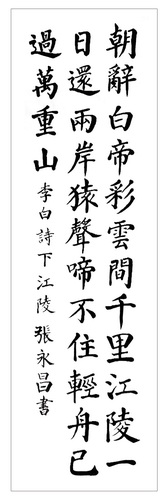 朝辭白帝彩雲間千里江陵一
日還兩岸猿聲啼不住輕舟已
過萬重山李白詩下江陵張永昌書